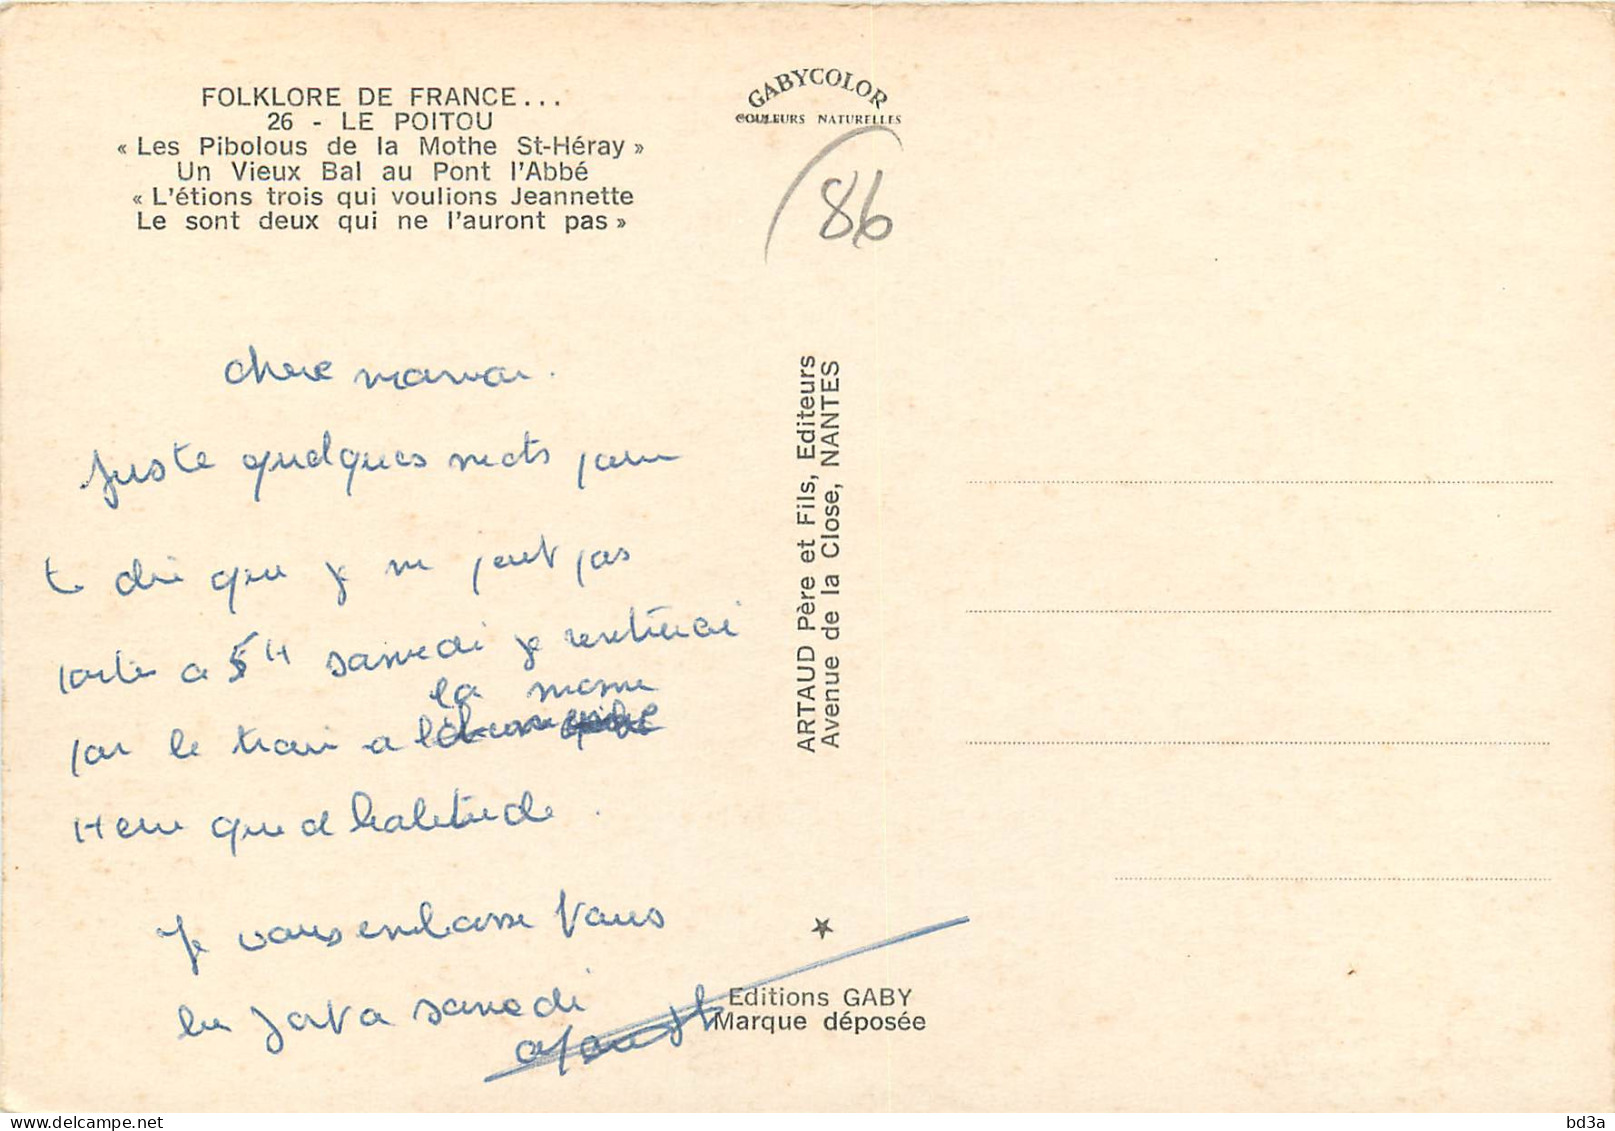 FOLKLORE DE FRANCE...
26 - LE POITOU
« Les Pibolous de la Mothe St-Héray »
Un Vieux Bal au Pont l'Abbé
« L'étions trois qui voulions Jeannette
Le sont deux qui ne l'auront pas »
GABYCOLOR
COULEURS NATURELLES
86
chere maman.
Juste quelques mots pour
te dire que je ne peut pas
partir a 5H samedi je rentrerai
la meme
par le train a
Heure que d habitude.
Je vous embrasse tous
samedi
ARTAUD Père et Fils, Editeurs
Avenue de la Close, NANTES
Editions GABY
Marque déposée
delcampe.net
bd3a